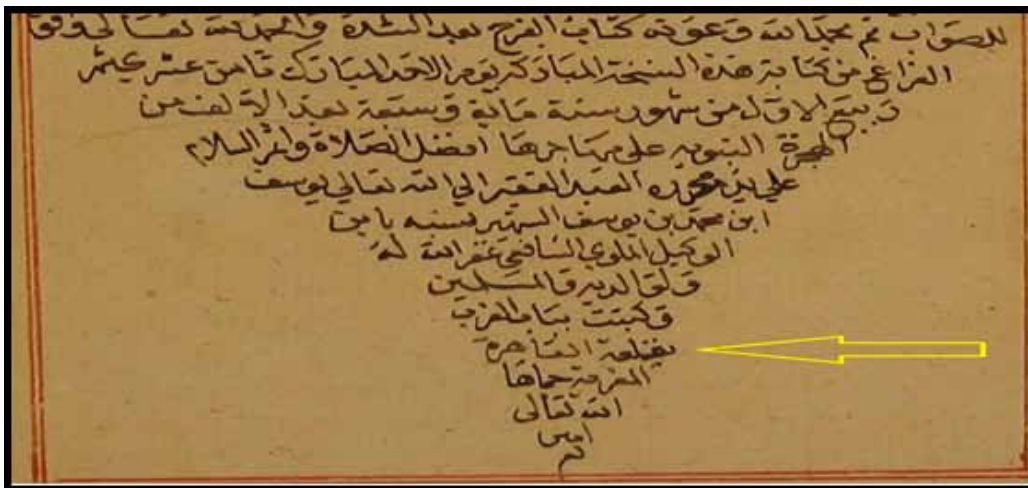 للصواب تم بحمد الله وعونه كتاب الفرج بعد الشدة والحمد لله تعالى وفق
الفراغ من كتابة هذه النسخة المباركة يوم الاحد المبارك ثامن عشر
ربيع الاول من شهور سنة ماية وسبعة بعد الالف من
الهجرة النبوية على مهاجرها افضل الصلاة واتم السلام
على يد العبد الفقير الى الله تعالى يوسف
ابن محمد بن يوسف الشهير نسبه بابن
الوكيل الملوي الشافعي غفر الله له
ولوالديه والمسلمين
وكتبت بباب العزب
بقلعة القاهرة
المعزية حماها
الله تعالى
امين
م